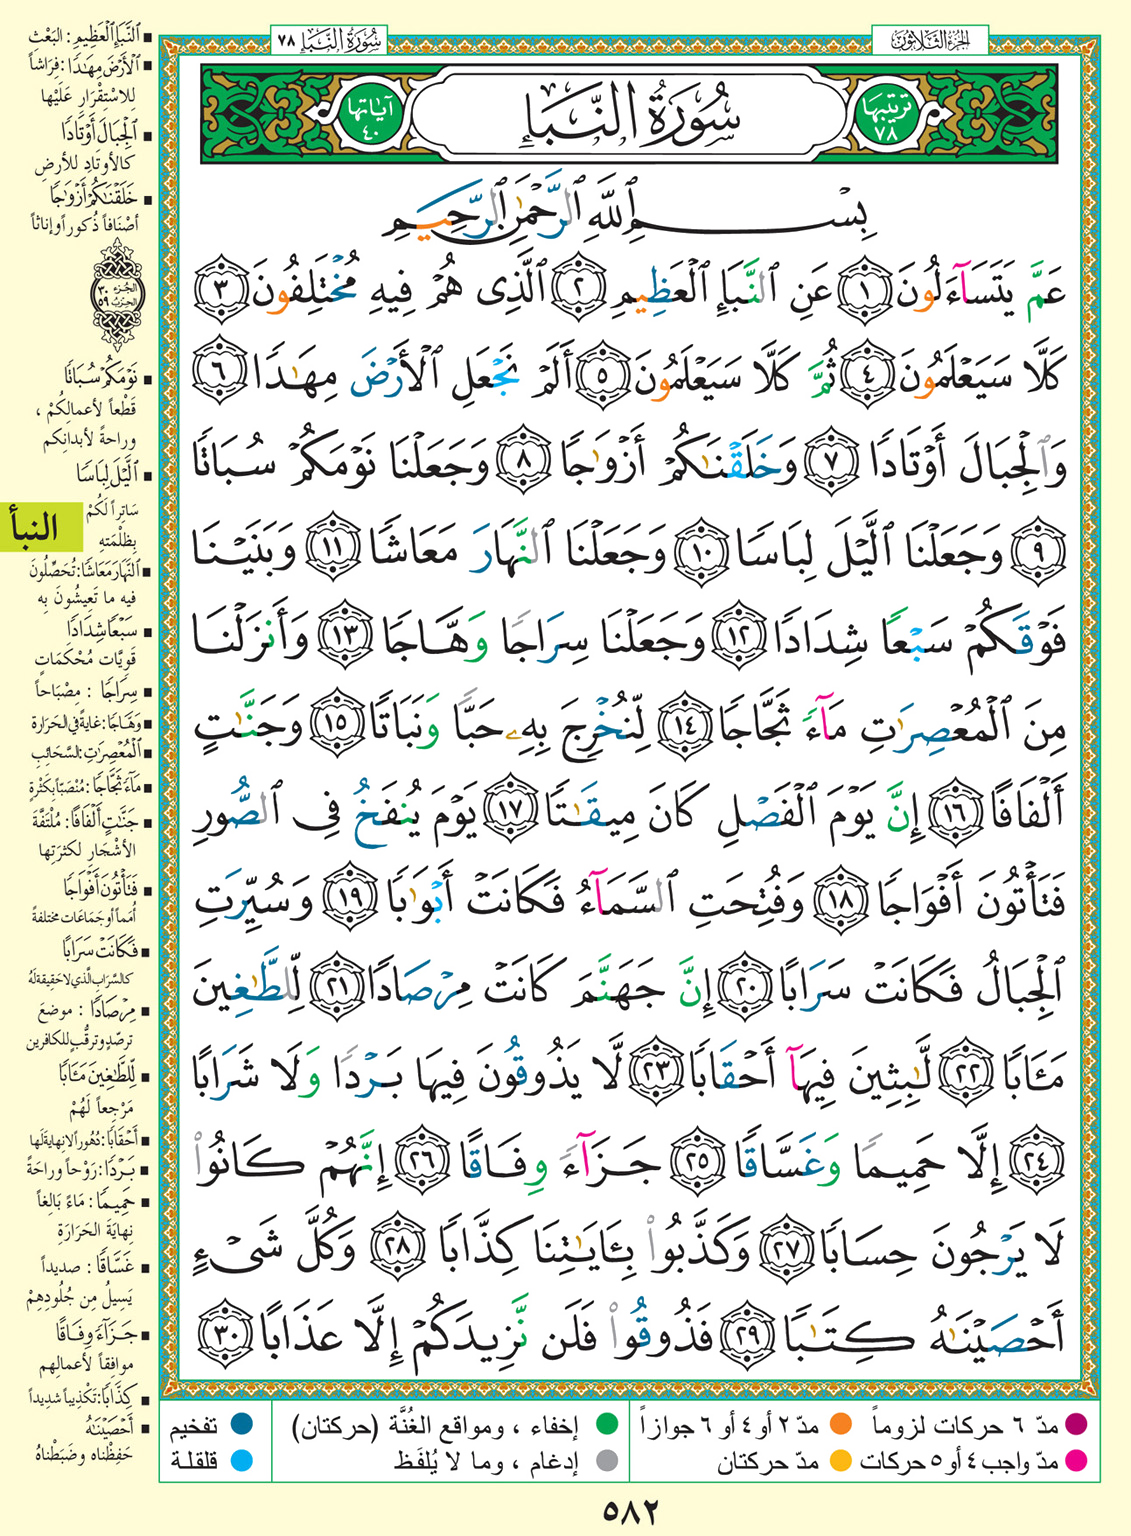 الجزء الثلاثون
سورة النبإ ٧٨
ترتيبها ٧٨
سُورَةُ النَّبَإِ
آياتها ٤٠
بِسْمِ ٱللَّهِ ٱلرَّحْمَٰنِ ٱلرَّحِيمِ
عَمَّ يَتَسَآءَلُونَ ١ عَنِ ٱلنَّبَإِ ٱلْعَظِيمِ ٢ ٱلَّذِى هُمْ فِيهِ مُخْتَلِفُونَ ٣
كَلَّا سَيَعْلَمُونَ ٤ ثُمَّ كَلَّا سَيَعْلَمُونَ ٥ أَلَمْ نَجْعَلِ ٱلْأَرْضَ مِهَٰدًا ٦
وَٱلْجِبَالَ أَوْتَادًا ٧ وَخَلَقْنَٰكُمْ أَزْوَٰجًا ٨ وَجَعَلْنَا نَوْمَكُمْ سُبَاتًا
٩ وَجَعَلْنَا ٱلَّيْلَ لِبَاسًا ١٠ وَجَعَلْنَا ٱلنَّهَارَ مَعَاشًا ١١ وَبَنَيْنَا
فَوْقَكُمْ سَبْعًا شِدَادًا ١٢ وَجَعَلْنَا سِرَاجًا وَهَّاجًا ١٣ وَأَنزَلْنَا
مِنَ ٱلْمُعْصِرَٰتِ مَآءً ثَجَّاجًا ١٤ لِّنُخْرِجَ بِهِۦ حَبًّا وَنَبَاتًا ١٥ وَجَنَّٰتٍ
أَلْفَافًا ١٦ إِنَّ يَوْمَ ٱلْفَصْلِ كَانَ مِيقَٰتًا ١٧ يَوْمَ يُنفَخُ فِى ٱلصُّورِ
فَتَأْتُونَ أَفْوَاجًا ١٨ وَفُتِحَتِ ٱلسَّمَآءُ فَكَانَتْ أَبْوَٰبًا ١٩ وَسُيِّرَتِ
ٱلْجِبَالُ فَكَانَتْ سَرَابًا ٢٠ إِنَّ جَهَنَّمَ كَانَتْ مِرْصَادًا ٢١ لِّلطَّٰغِينَ
مَـَٔابًا ٢٢ لَّٰبِثِينَ فِيهَآ أَحْقَابًا ٢٣ لَّا يَذُوقُونَ فِيهَا بَرْدًا وَلَا شَرَابًا
٢٤ إِلَّا حَمِيمًا وَغَسَّاقًا ٢٥ جَزَآءً وِفَاقًا ٢٦ إِنَّهُمْ كَانُوا۟
لَا يَرْجُونَ حِسَابًا ٢٧ وَكَذَّبُوا۟ بِـَٔايَٰتِنَا كِذَّابًا ٢٨ وَكُلَّ شَىْءٍ
أَحْصَيْنَٰهُ كِتَٰبًا ٢٩ فَذُوقُوا۟ فَلَن نَّزِيدَكُمْ إِلَّا عَذَابًا ٣٠
■ ٱلنَّبَإِ ٱلْعَظِيمِ: البَعْث
■ ٱلْأَرْضَ مِهَٰدًا: فِرَاشاً
لِلاسْتِقْرَارِ عَلَيْها
■ ٱلْجِبَالَ أَوْتَادًا
كالأوتادِ للأرضِ
■ خَلَقْنَٰكُمْ أَزْوَٰجًا
أصْنَافاً ذُكوراً وإناثاً
الجزء ٣٠
الحزب ٥٩
■ نَوْمَكُمْ سُبَاتًا
قَطْعاً لأعمالِكُمْ ،
وراحةً لأبدانِكم
■ ٱلَّيْلَ لِبَاسًا
سَاتِراً لَكُمْ
بِظُلْمَتِهِ
النبأ
■ ٱلنَّهَارَ مَعَاشًا: تُحَصِّلُونَ
فيه ما تَعِيشُونَ بِه
■ سَبْعًا شِدَادًا
قَوِيَّاتٍ مُحْكَمَاتٍ
■ سِرَاجًا : مِصْبَاحاً
■ وَهَّاجًا: غايةً في الحَرَارة
■ ٱلْمُعْصِرَٰتِ: السَّحَائِبِ
■ مَآءً ثَجَّاجًا: مُنْصَبّاً بِكَثْرةٍ
■ جَنَّٰتٍ أَلْفَافًا: مُلْتَفَّةَ
الأشْجَارِ لكثرَتِها
■ فَتَأْتُونَ أَفْوَاجًا
أُمَماً أو جَمَاعَات مختلفةً
■ فَكَانَتْ سَرَابًا
كالسَّرَابِ الَّذي لا حَقِيقةَ لَهُ
■ مِرْصَادًا : موضعَ
ترصُّدٍ وترقُّبٍ للكافرين
■ لِّلطَّٰغِينَ مَـَٔابًا
مَرْجِعاً لَهُمْ
■ أَحْقَابًا: دُهُوراً لا نِهايةَ لَها
■ بَرْدًا: رَوْحاً وراحَةً
■ حَمِيمًا: مَاءً بَالِغاً
نِهايَةَ الحَرَارَةِ
■ غَسَّاقًا: صديداً
يَسِيلُ مِن جُلُودِهِمْ
■ جَزَآءً وِفَاقًا
موافِقاً لأعمالِهم
■ كِذَّابًا: تَكْذِيباً شديداً
■ أَحْصَيْنَٰهُ
حَفِظْناه وضَبَطْناهُ
مدّ ٦ حركات لزوماً
مدّ ٢ أو ٤ أو ٦ جوازاً
إخفاء ، ومواقع الغُنَّة (حركتان)
تفخيم
مدّ واجب ٤ أو ٥ حركات
مدّ حركتان
إدغام ، وما لا يُلفَظ
قلقلة
٥٨٢